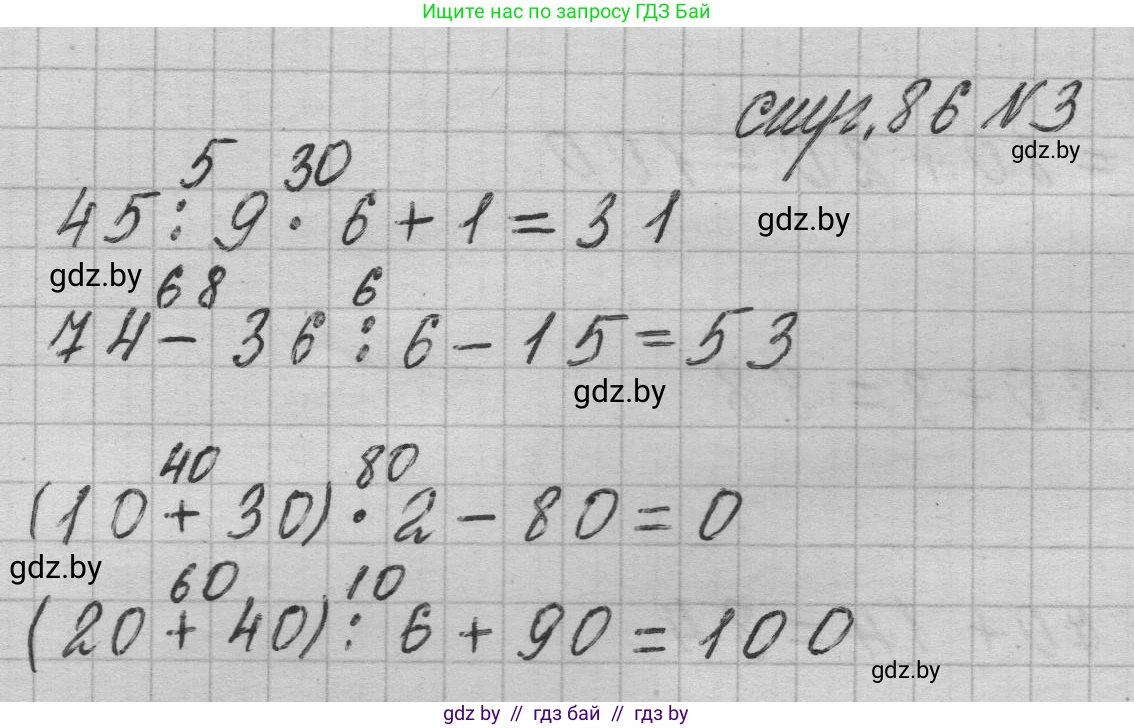 Ищите нас по запросу ГДЗ Бай
стр. 86 №3
gdz.by
5 30
45 : 9 · 6 + 1 = 31
gdz.by
gdz.by
68 6
74 - 36 : 6 - 15 = 53
gdz.by
40 80
(10 + 30) · 2 - 80 = 0
gdz.by
60 10
(20 + 40) : 6 + 90 = 100
gdz.by
gdz by // гдз бай // gdz by